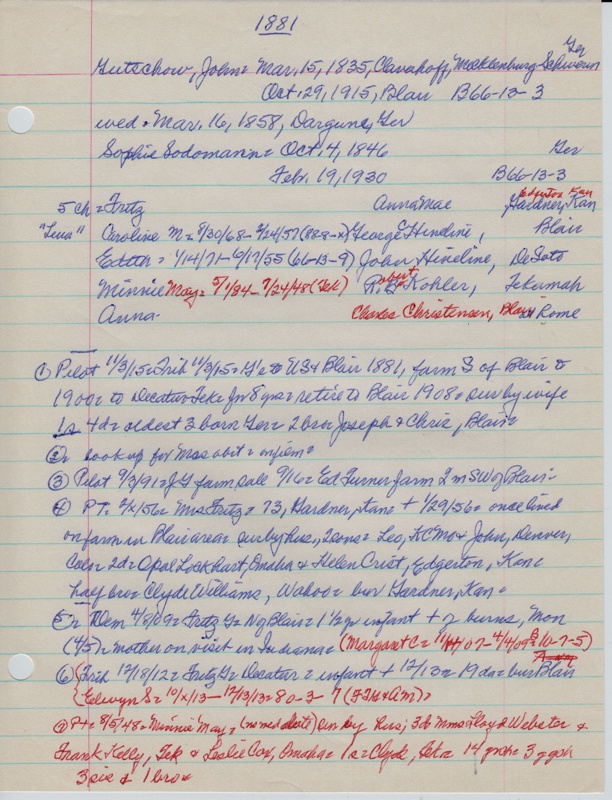 1881
Ger
Gutschow, John = Mar. 15, 1835, Clavahoff, Mecklenburg-Schwerin
Oct. 29, 1915, Blair B66-13-3
wed = Mar. 16, 1858, Dargune, Ger
Sophie Sodomann = Oct. 4, 1846 Ger
Feb. 19, 1930 B66-13-3
Edgerton Kan
5 ch = Fritz Anna Mae Gardner, Kan
"Lena" Caroline M = 8/30/68 - 2/24/57 (88-8-x) George E Hineline, Blair
Edith = 1/14/71 - 6/17/55 (66-13-9) John Hineline, DeSoto
Minnie May = 5/1/84 - 7/24/48 (Tek) Robert Kohler, Tekamah
Anna - Charles Christensen, Blair Rome
① Pilot 11/3/15 = Trib 11/3/15 = G's to US & Blair 1881, farm S of Blair to
1900 = to Decatur-Tek for 8 yrs = retire to Blair 1908 = surv by wife
1s 4d = oldest 3 born Ger = 2 born Joseph & Chris, Blair =
② = look up for Mrs obit =
③ Pilot 9/3/91 = J G farm sale 9/16 = Ed Turner farm 2 m SW of Blair =
④ PT = 2/x/56 = Mrs Fritz = 73, Gardner, Kan = + 1/29/56 = once lived
on farm in Blair area = surv by hus, 2 sons = Leo, KC Mo & John, Denver,
Colo = 2d = Opal Lockhart, Omaha & Helen Crist, Edgerton, Kan =
half bro = Clyde Williams, Wahoo = bur Gardner, Kan =
5 = Dem 4/8/09 = Fritz G = N of Blair = 1 1/2 yr infant + of burns, Mon
(4/5) = mother on visit in Indiana = (Margaret C = 11/ /07 - 4/4/09 10-7-5)
⑥ Trib 12/18/12 = Fritz G = Decatur = infant + 12/13 = 19 da = bur Blair
Edwyn S = 10/x/13 - 12/13/13 = 80-3-7
PT = 8/5/48 = Minnie May = (no med date) surv by hus; 3d = Mmes Floyd Webster &
Frank Kelly, Tek & Leslie Cox, Omaha = 1s = Clyde, 14 gch = 3 ggch
3 sis & 1 bro =